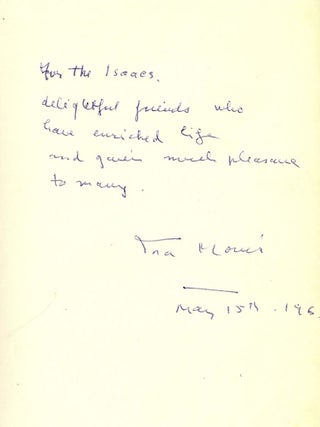 for the Isaacs.
delightful friends who
have enriched life
and given much pleasure
to many.
Ira Morris
May 15th . 196